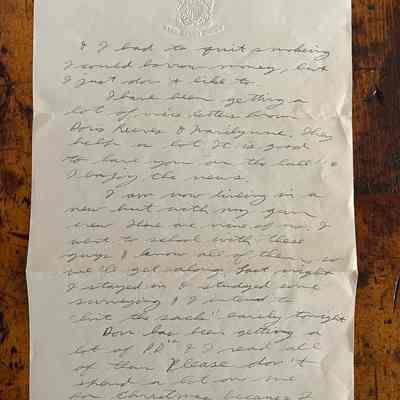 & I had to quit smoking
I could borrow money, but
I just don't like to.
I have been getting a
lot of nice letters from
Doris Reeves & Marilynne. They
help a lot. It is good
to have you on the ball" &
I enjoy the news.
I am now living in a
new hut with my gun
crew There are nine of us. I
went to school with these
guys & know all of them, so
we'll get along. Last night
I stayed in & studied some
surveying & I intend to
"hit the sack" early tonight
Dori has been getting a
lot of P.D.'s & I read all
of them Please don't
spend a lot on me
for Christmas because I